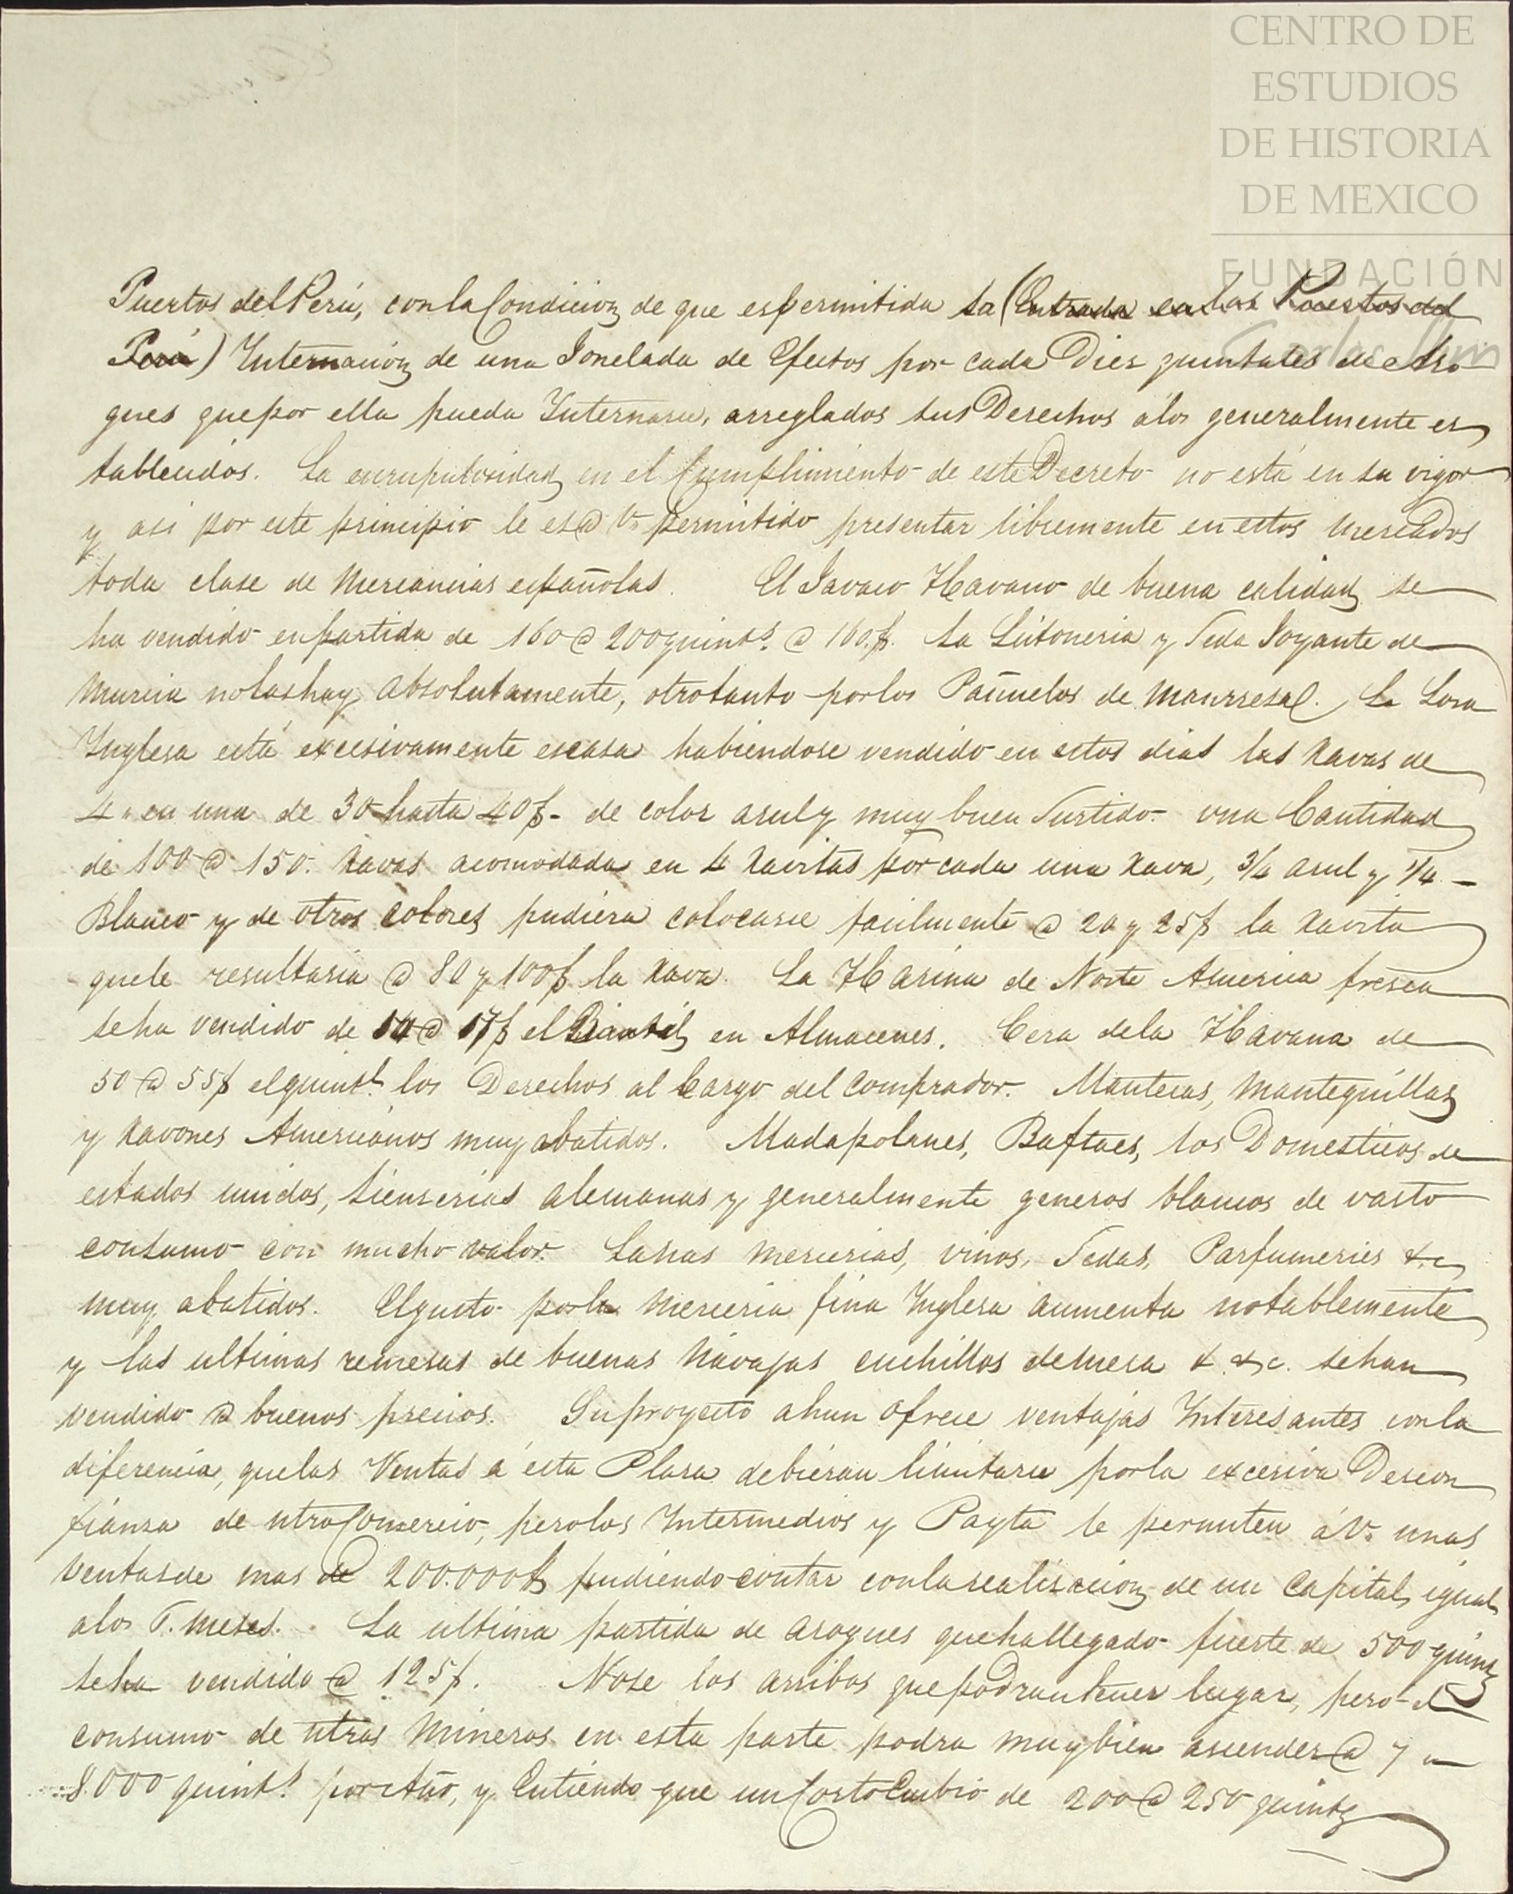 CENTRO DE
ESTUDIOS
DE HISTORIA
DE MEXICO
FUNDACIÓN
Carlos Slim
Puertos del Perú, con la Condicion de que es permitida la (Entrada en los Puertos del
Perú) Internacion de una Tonelada de Efectos por cada Diez quintales de Aso
gues que por ella pueda Internarse, arreglados sus Derechos á los generalmente es
tablecidos. La escrupulosidad en el Cumplimiento de este Decreto no está en su vigor
y asi por este principio le es @ V. permitido presentar libremente en estos mercados
toda clase de Mercancias españolas. El Tavaco Havano de buena calidad se
ha vendido en partida de 160 @ 200 quints. @ 160.$. La Listoneria y Seda Joyante de
Murcia no las hay absolutamente, otro tanto por los Pañuelos de Manrresa. La Losa
Ynglesa está excesivamente escasa habiendose vendido en estos dias las xavas de
4 en una de 30 hasta 40$- de color asul y muy buen Surtido. una Cantidad
de 100 @ 150. xavas acomodada en 4 xavitas por cada una xava, 3/4 asul y 1/4 -
Blanco y de otros colores pudiera colocarse facilmente @ 20 y 25$ la xavita
que le resultaria @ 80 y 100$ la xava. La Harina de Norte America fresca
se ha vendido de 14 @ 17$ el en Almacenes. Cera de la Havana de
50 @ 55$ el quintl. los Derechos al Cargo del comprador. Mantecas, mantequillas
y xavones Americanos muy abatidos. Madapolanes, Baftaes, los Domesticos de
estados unidos, Lienserias alemanas y generalmente generos blancos de vasto
consumo con mucho valor. Lanas mercerias, vinos, Sedas, Parfumeries &c
muy abatidos. El gusto por la merceria fina Ynglesa aumenta notablemente
y las ultimas remesas de buenas Navajas cuchillos de mesa & &c. se han
vendido @ buenos precios. Su proyecto ahun ofrece ventajas Interesantes con la
diferencia, que las Ventas á esta Plasa debieran limitarse por la excesiva Descon
fiansa de ntro Comercio, pero los Intermedios y Payta le permiten á V. unas
Ventas de mas de 200.000$ pudiendo contar con la realisacion de un Capital igual
a los meses. La ultima partida de asogues que ha llegado fuerte de 500 quints
se ha vendido @ 125$. No se los arribos que podran tener lugar, pero el
consumo de ntros Mineros en esta parte podra muy bien ascender @ 7 u
8.000 quints. por Año, y Entiendo que un Corto Embio de 200 @ 250 quints